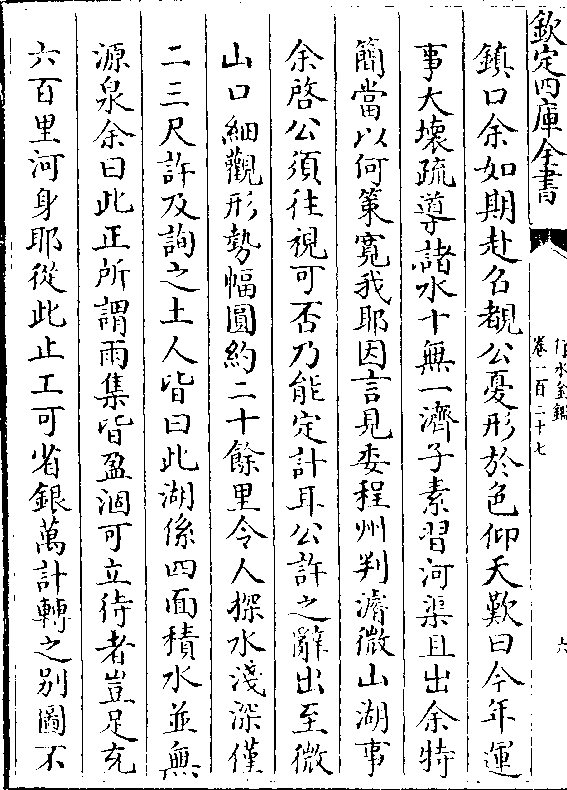 欽定四庫全書
行水金鑑
卷一百二十七
六
鎮口余如期赴召覩公憂形於色仰天歎曰今年運
事大壞疏導諸水十無一濟子素習河渠且出余特
簡當以何策寛我耶因言見委程州判濬微山湖事
余啓公須往視可否乃能定計耳公許之辭出至微
山口細觀形勢幅圓約二十餘里令人探水淺深僅
二三尺許及詢之土人皆曰此湖係四面積水並無
源泉余曰此正所謂雨集皆盈涸可立待者豈足充
六百里河身耶從此止工可省銀萬計轉之别圖不